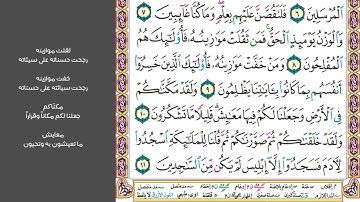 ٱلْمُرْسَلِينَ ٦ فَلَنَقُصَّنَّ عَلَيْهِم بِعِلْمٍ وَمَا كُنَّا غَآئِبِينَ ٧
وَٱلْوَزْنُ يَوْمَئِذٍ ٱلْحَقُّ فَمَن ثَقُلَتْ مَوَٰزِينُهُۥ فَأُو۟لَٰٓئِكَ هُمُ
ٱلْمُفْلِحُونَ ٨ وَمَنْ خَفَّتْ مَوَٰزِينُهُۥ فَأُو۟لَٰٓئِكَ ٱلَّذِينَ خَسِرُوٓا۟
أَنفُسَهُم بِمَا كَانُوا۟ بِـَٔايَٰتِنَا يَظْلِمُونَ ٩ وَلَقَدْ مَكَّنَّٰكُمْ
فِى ٱلْأَرْضِ وَجَعَلْنَا لَكُمْ فِيهَا مَعَٰيِشَ قَلِيلًا مَّا تَشْكُرُونَ ١٠
وَلَقَدْ خَلَقْنَٰكُمْ ثُمَّ صَوَّرْنَٰكُمْ ثُمَّ قُلْنَا لِلْمَلَٰٓئِكَةِ ٱسْجُدُوا۟
لِـَٔادَمَ فَسَجَدُوٓا۟ إِلَّآ إِبْلِيسَ لَمْ يَكُن مِّنَ ٱلسَّٰجِدِينَ ١١
ثقلت موازينه
رجحت حسناته على سيئاته
خفت موازينه
رجحت سيئاته على حسناته
مكناكم
جعلنا لكم مكاناً وقراراً
معايش
ما تعيشون به وتحيون